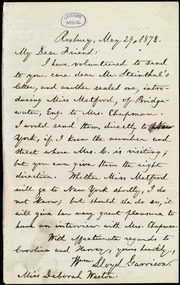 Roxbury, May 29, 1878.
My Dear Friend:
I have volunteered to send
to your care dear Mrs. Steinthal's
letter, and another sealed one, intro-
ducing Miss Metford, of Bridge-
water, Eng. to Mrs. Chapman.
I would send them directly to New
York, if I knew the number and
street where Mrs. C. is visiting; but
you can give them the right
direction. Whether Miss Metford
will go to New York shortly, I do
not know; but should she do so, it
will give her very great pleasure to
have an interview with Mrs. Chapman.
With affectionate regards to
Caroline and Harvey, yours, truly,
Wm. Lloyd Garrison.
Miss Deborah Weston.